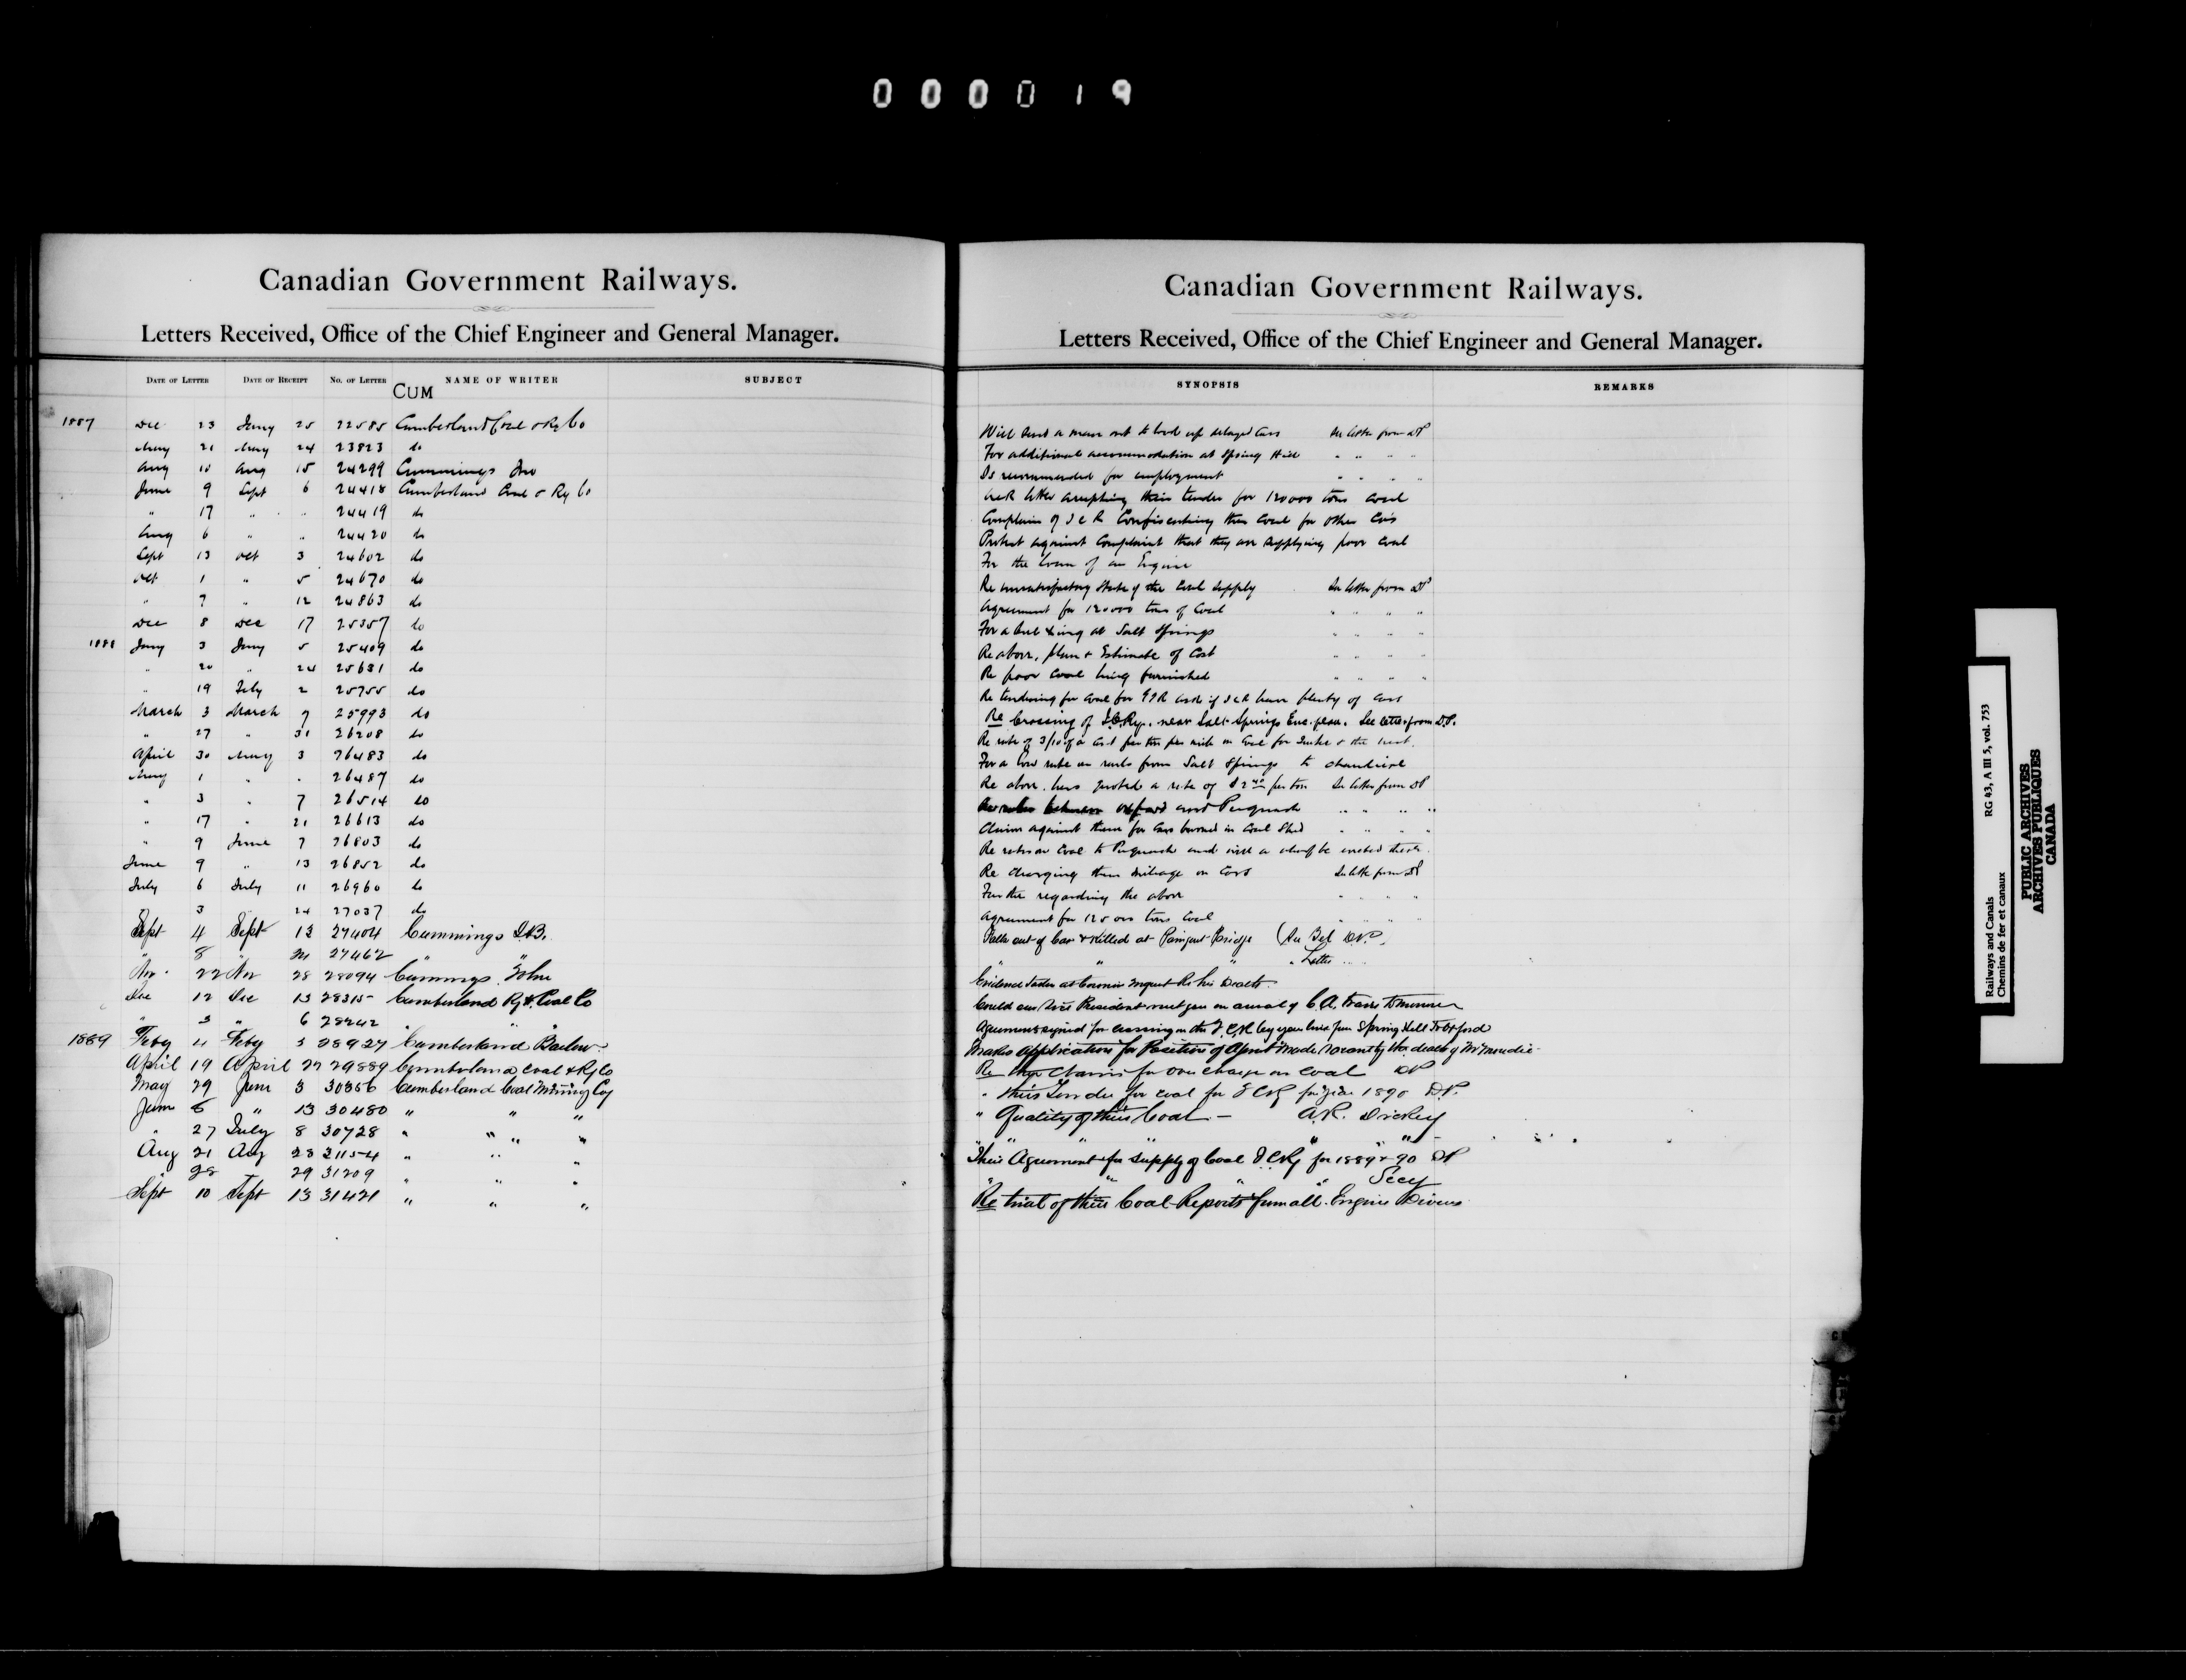 000019
Canadian Government Railways.
Letters Received, Office of the Chief Engineer and General Manager.
DATE OF LETTER DATE OF RECEIPT NO. OF LETTER NAME OF WRITER SUBJECT
CUM
1887 Dec 23 Jany 25 22585 Cumberland Coal & Ry Co
May 21 May 24 23823 do
Aug 10 Aug 15 24299 Cummings Jno
June 9 Sept 6 24418 Cumberland Coal & Ry Co
" 17 " " 24419 do
Aug 6 " " 24420 do
Sept 13 Oct 3 24602 do
Oct 1 " 5 24670 do
" 7 " 12 24863 do
Dec 8 Dec 17 25357 do
1888 Jany 3 Jany 5 25409 do
" 20 24 25631 do
" 19 Feby 2 25755 do
March 3 March 7 25993 do
" 27 " 31 26208 do
April 30 May 3 26483 do
May 1 " " 26487 do
" 3 " 7 26514 do
" 17 " 21 26613 do
" 9 June 7 26803 do
June 9 " 13 26852 do
July 6 July 11 26960 do
3 24 27037 do
Sept 4 Sept 13 27404 Cummings I.B.
" 8 27462 " "
Nov 22 Nov 28 28094 Cummings John
Dec 12 Dec 13 28315 Cumberland Ry & Coal Co
" 3 " 6 28242 " " "
1889 Feby 4 Feby 5 28927 Cumberland Barlow
April 19 April 22 29889 Cumberland Coal & Ry Co
May 29 June 3 30356 Cumberland Coal Mining Coy
June 8 " 13 30480 " " "
" 27 July 8 30728 " " " "
Aug 21 Aug 23 31154 " " "
28 29 31209 " " "
Sept 10 Sept 13 31421 " " "
Canadian Government Railways.
Letters Received, Office of the Chief Engineer and General Manager.
SYNOPSIS REMARKS
Will send a man out to load up delayed Cars See letter from DP
For additional accommodation at Spring Hill " " " "
Is recommended for employment " " " "
letter accepting their tender for 120000 tons Coal
Complain of I C R Confiscating their Coal for other Co's
Protest against Complaint that they are supplying poor Coal
For the loan of an Engine
Re unsatisfactory state of the Coal supply See letter from DP
Agreement for 120000 tons of Coal " " " "
For a at Salt Springs " " " "
Re above, plan & Estimate of Cost " " " "
Re poor Coal being furnished " " " "
Re tendering for Coal for GTR asks if I C R have plenty of Cars
Re Crossing of I.C.Ry. near Salt Springs Enc. plan. See letter from D.P.
Re rate of 3/10 of a Cent per ton per mile on Coal for
For a low rate on rails from Salt Springs to Chaudiere
Re above, has quoted a rate of $2 per ton See letter from DP
Oxford and Pugwash " " " "
Claim against them for Cars burned in Coal Shed " " " "
Re rates on Coal to Pugwash and will a wharf be erected there
Re charging them mileage on Cars See letter from DP
Further regarding the above " " " "
Agreement for 125000 tons Coal " " " "
Falls out of Car & killed at Bridge (See Tel D.P.)
" " " Letter
Evidence taken at Coroners Inquest Re his Death
Could our Vice President meet you on arrival of C.A. train
Agreement signed for crossing on the I.C.R by your line from Spring Hill to Oxford
Makes application for Position of Agent made vacant by the death of Mr
Re their Claims for over charge on Coal DP
" their Tender for coal for ICRy for year 1890 D.P.
" Quality of their Coal — A.R. Dickey
" " " " " "
Their Agreement for supply of Coal I.C.Ry for 1889 & 90 DP
" " " " Secy
Re trial of their Coal Reports from all Engine Drivers
Railways and Canals RG 43, A III 5, vol. 753
Chemins de fer et canaux
PUBLIC ARCHIVES
ARCHIVES PUBLIQUES
CANADA